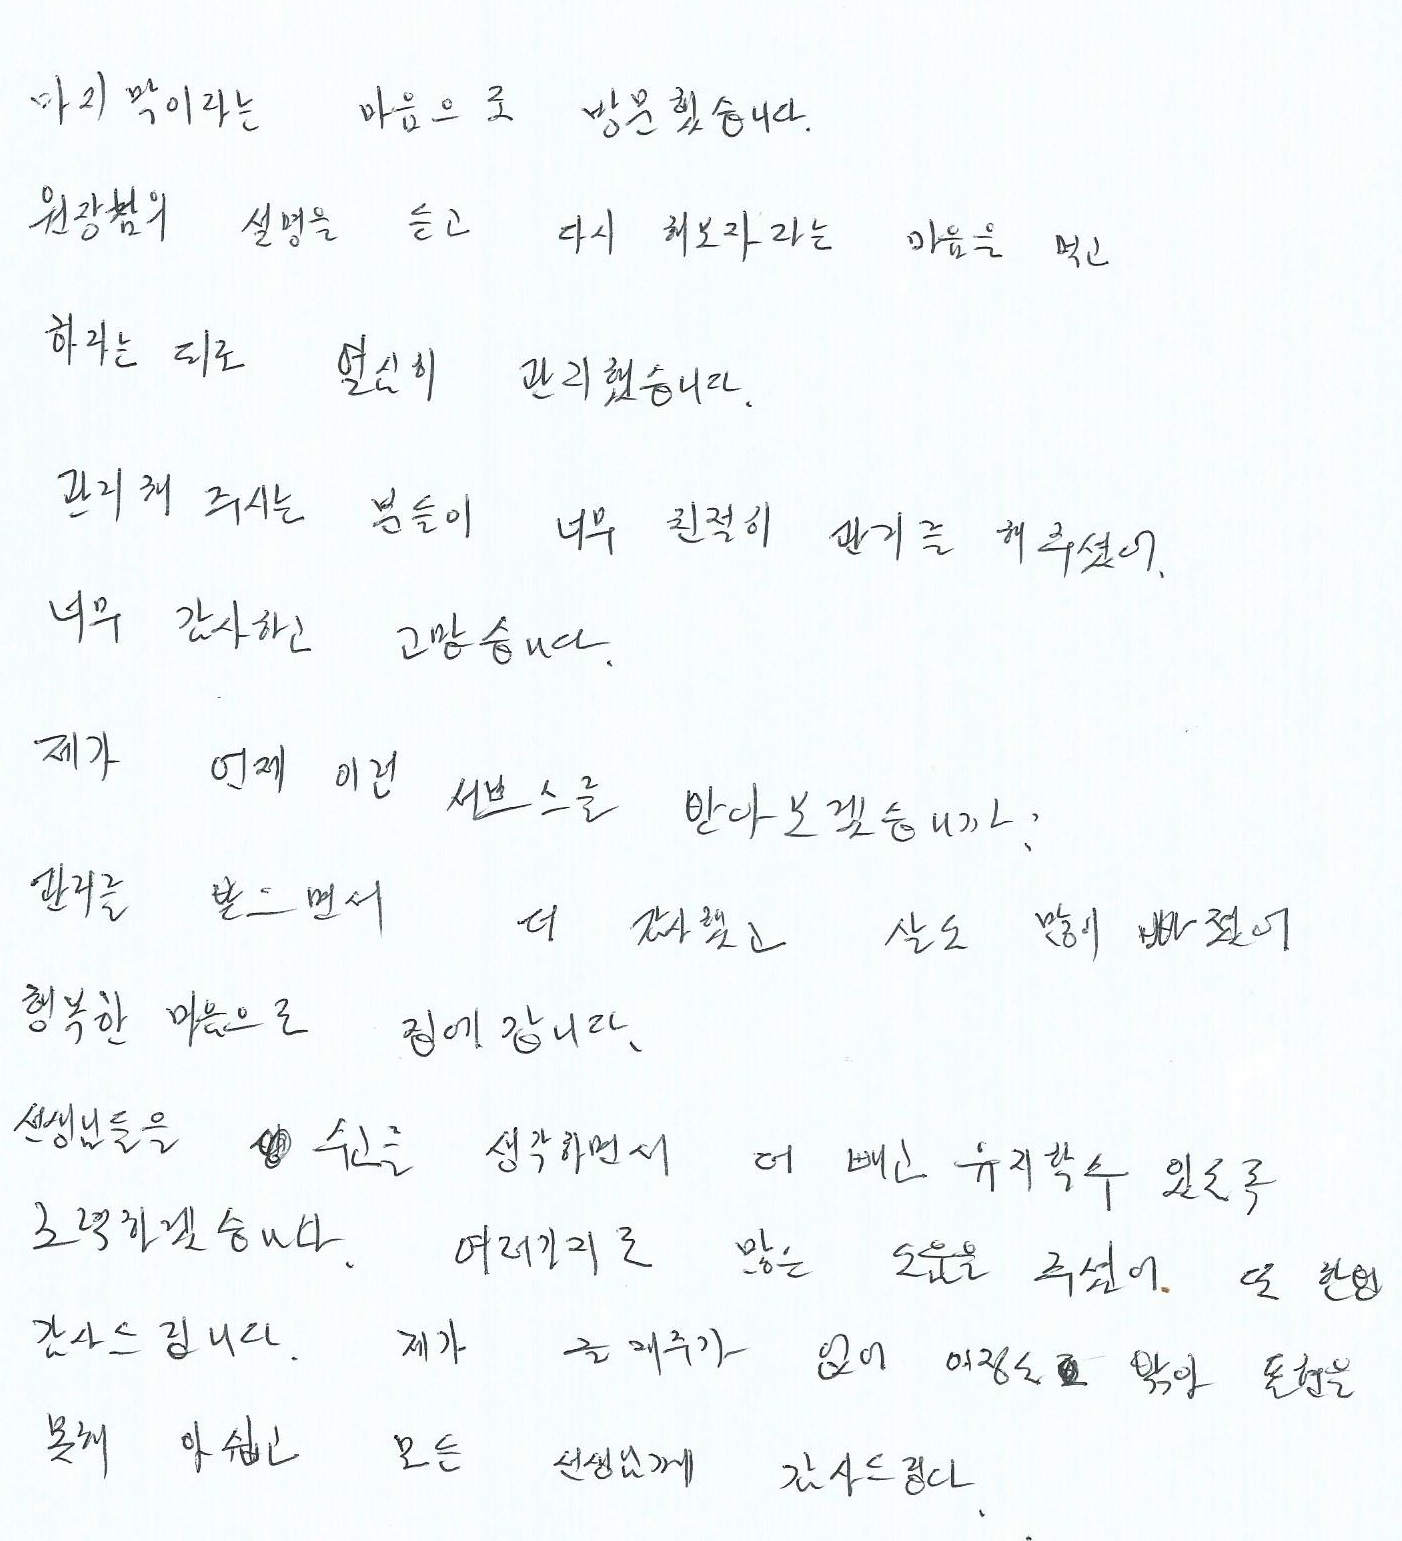 마지막이라는 마음으로 방문했습니다.
원장님의 설명을 듣고 다시 해보자라는 마음을 먹고
하라는 데로 열심히 관리했습니다.
관리해 주시는 분들이 너무 친절히 관리를 해주셨어.
너무 감사하고 고맙습니다.
제가 언제 이런 서브스를 받아보겠습니까?
관리를 받으면서 더 감사했고 살도 많이 빠졌어
행복한 마음으로 집에 갑니다.
선생님들을 수고를 생각하면서 더 빼고 유지할수 있도록
노력하겠습니다. 여러가지로 많은 도움을 주셨어. 또 한번
감사드립니다. 제가 글재주가 없어 이정도 밖아 표현을
못해 아쉽고 모든 선생님께 감사드립다.